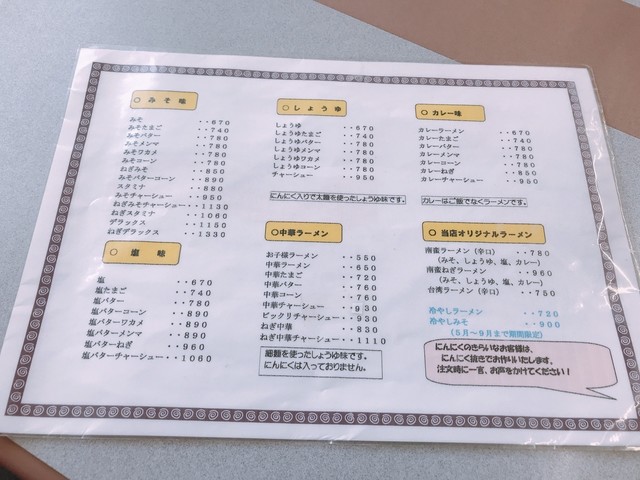 ○ みそ味
みそ ・・670
みそたまご ・・740
みそバター ・・780
みそメンマ ・・780
みそワカメ ・・780
みそコーン ・・780
ねぎみそ ・・850
みそバターコーン ・・890
スタミナ ・・880
みそチャーシュー ・・950
ねぎみそチャーシュー ・・1130
ねぎスタミナ ・・1060
デラックス ・・1150
ねぎデラックス ・・1330
○ 塩 味
塩 ・・670
塩たまご ・・740
塩バター ・・780
塩バターコーン ・・890
塩バターワカメ ・・890
塩バターメンマ ・・890
塩バターねぎ ・・960
塩バターチャーシュー ・・1060
○ しょうゆ
しょうゆ ・・670
しょうゆたまご ・・740
しょうゆバター ・・780
しょうゆメンマ ・・780
しょうゆワカメ ・・780
しょうゆコーン ・・780
チャーシュー ・・950
にんにく入りで太麺を使ったしょうゆ味です。
○中華ラーメン
お子様ラーメン ・・550
中華ラーメン ・・650
中華たまご ・・720
中華バター ・・760
中華コーン ・・760
中華チャーシュー ・・930
ビックリチャーシュー ・・930
ねぎ中華 ・・830
ねぎ中華チャーシュー ・・1110
細麺を使ったしょうゆ味です。
にんにくは入っておりません。
○ カレー味
カレーラーメン ・・670
カレーたまご ・・740
カレーバター ・・780
カレーメンマ ・・780
カレーコーン ・・780
カレーねぎ ・・850
カレーチャーシュー ・・950
カレーはご飯でなくラーメンです。
○ 当店オリジナルラーメン
南蛮ラーメン（辛口） ・・780
（みそ、しょうゆ、塩、カレー）
南蛮ねぎラーメン ・・960
（みそ、しょうゆ、塩、カレー）
台湾ラーメン（辛口） ・・750
冷やしラーメン ・・720
冷やしみそ ・・900
（5月～9月まで期間限定）
にんにくのきらいなお客様は、
にんにく抜きでお作りいたします。
注文時に一言、お声をかけてください！